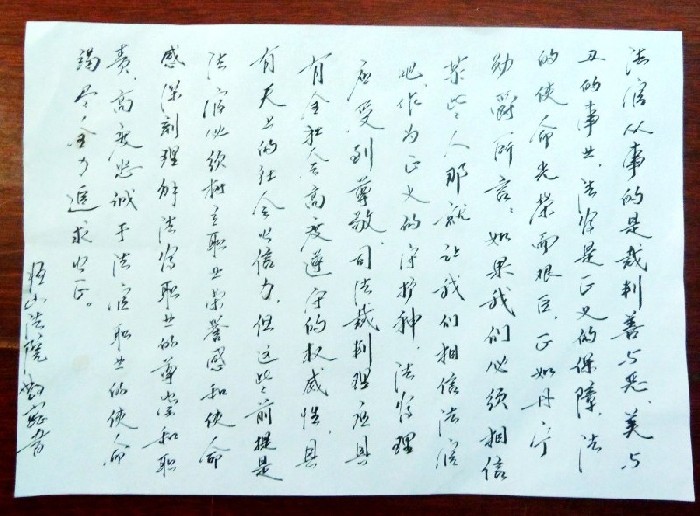 法官从事的是裁判善与恶、美与
丑的事业，法官是正义的保障，法官
的使命光荣而艰巨，正如丹宁
勋爵所言：如果我们必须相信
某些人那就让我们相信法官
吧。作为正义的守护神，法官理
应受到尊敬，司法裁判理应具
有全社会高度遵守的权威性，具
有天上的社会公信力，但这些前提是
法官必须树立职业荣誉感和使命
感，深刻理解法官职业的尊崇和职
责，高度忠诚于法官职业的使命，
竭尽全力追求公正。
恒山法院